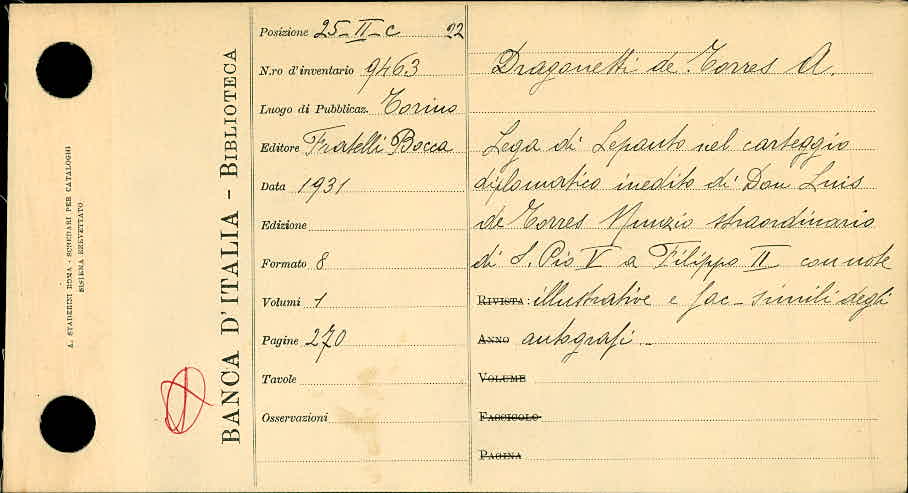 A. STADERINI ROMA - SCHEDARI PER CATALOGHI
SISTEMA BREVETTATO
BANCA D'ITALIA - BIBLIOTECA
Posizione 25-II-C 22
N.ro d'inventario 9463
Luogo di Pubblicaz. Torino
Editore Fratelli Bocca
Data 1931
Edizione
Formato 8
Volumi 1
Pagine 270
Tavole
Osservazioni
Dragonetti de Torres A.
Lega di Lepanto nel carteggio
diplomatico inedito di Don Luis
de Torres Nunzio straordinario
di S. Pio V a Filippo II con note
RIVISTA: illustrative e fac-simili degli
ANNO autografi -
VOLUME
FASCICOLO
PAGINA